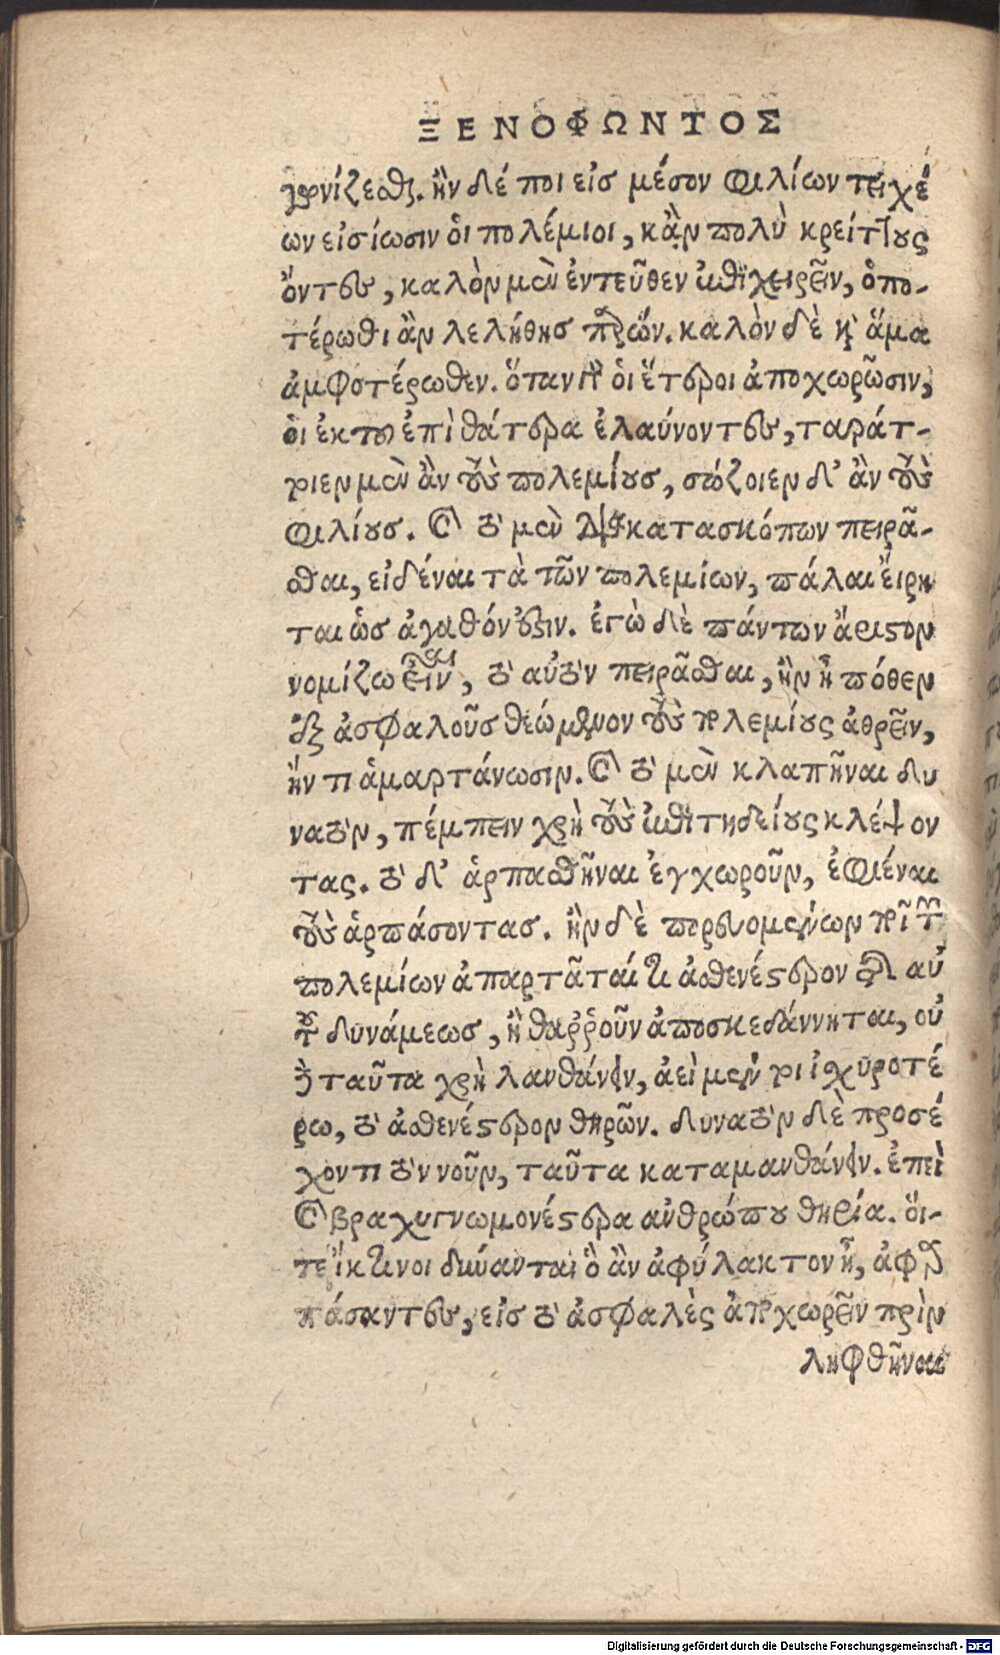 ΞΕΝΟΦΩΝΤΟΣ
γωνίζεσθαι. ἢν δέ ποι εἰς μέσον φιλίων τειχέ
ων εἰσίωσιν ὁι πολέμιοι, κἂν πολὺ κρείττους
ὄντες, καλὸν μὲν ἐντεῦθεν ἐπιχειρεῖν, ὁπο-
τέρωθι ἂν λελήθῃς παρών. καλὸν δὲ καὶ ἅμα
ἀμφοτέρωθεν. ὅταν γὰρ ὁι ἕτεροι ἀποχωρῶσιν,
ὁι ἐκ τοῦ ἐπὶ θάτερα ἐλαύνοντες, ταράτ-
τοιεν μὲν ἂν τοὺς πολεμίους, σώζοιεν δ' ἂν τοὺς
φιλίους. καὶ τὸ μὲν διὰ κατασκόπων πειρᾶ-
σθαι, εἰδέναι τὰ τῶν πολεμίων, πάλαι εἴρη
ται ὡς ἀγαθόν ἐστιν. ἐγὼ δὲ πάντων ἄριστον
νομίζω εἶναι, τὸ αὐτὸν πειρᾶσθαι, ἢν ᾖ πόθεν
ἐξ ἀσφαλοῦς θεώμενον τοὺς πολεμίους ἀθρεῖν,
ἤν τι ἁμαρτάνωσιν. καὶ τὸ μὲν κλαπῆναι δυ
νατὸν, πέμπειν χρὴ τοὺς ἐπιτηδείους κλέψον
τας. τὸ δ' ἁρπασθῆναι ἐγχωροῦν, ἐφιέναι
τοὺς ἁρπάσοντας. ἢν δὲ πορευομένων ποῖ τῶν
πολεμίων ἀπαρτᾶταί τι ἀσθενέστερον τῆς αὐ
τοῦ δυνάμεως, ἢ θαῤῥοῦν ἀποσκεδάννηται, οὐ
δὲ ταῦτα χρὴ λανθάνειν, ἀεὶ μέντοι ἰσχυροτέ
ρω, τὸ ἀσθενέστερον θηρῶν. δυνατὸν δὲ προσέ
χοντι τὸν νοῦν, ταῦτα καταμανθάνειν. ἐπεὶ
καὶ βραχυγνωμονέστερα ἀνθρώπου θηρία. ὅι-
τε ἴκτινοι δύνανται ὃ ἂν ἀφύλακτον ᾖ, ἀφαρ
πάσαντες, εἰς τὸ ἀσφαλὲς ἀποχωρεῖν πρὶν
ληφθῆναι
Digitalisierung gefördert durch die Deutsche Forschungsgemeinschaft - DFG